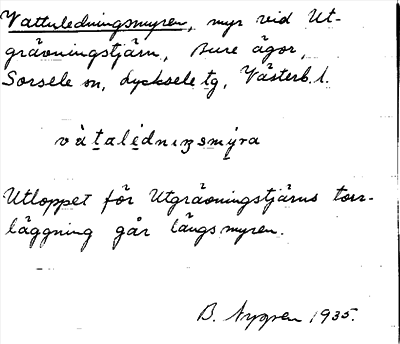 Vattuledningsmyren, myr vid Ut-
grävningstjärn, Bure ägor,
Sorsele sn, Lycksele tg, Västerb. l.
vàtalédnıŋsmýra
Utloppet för Utgrävningstjärns torr-
läggning går längs myren.
B. 1935.